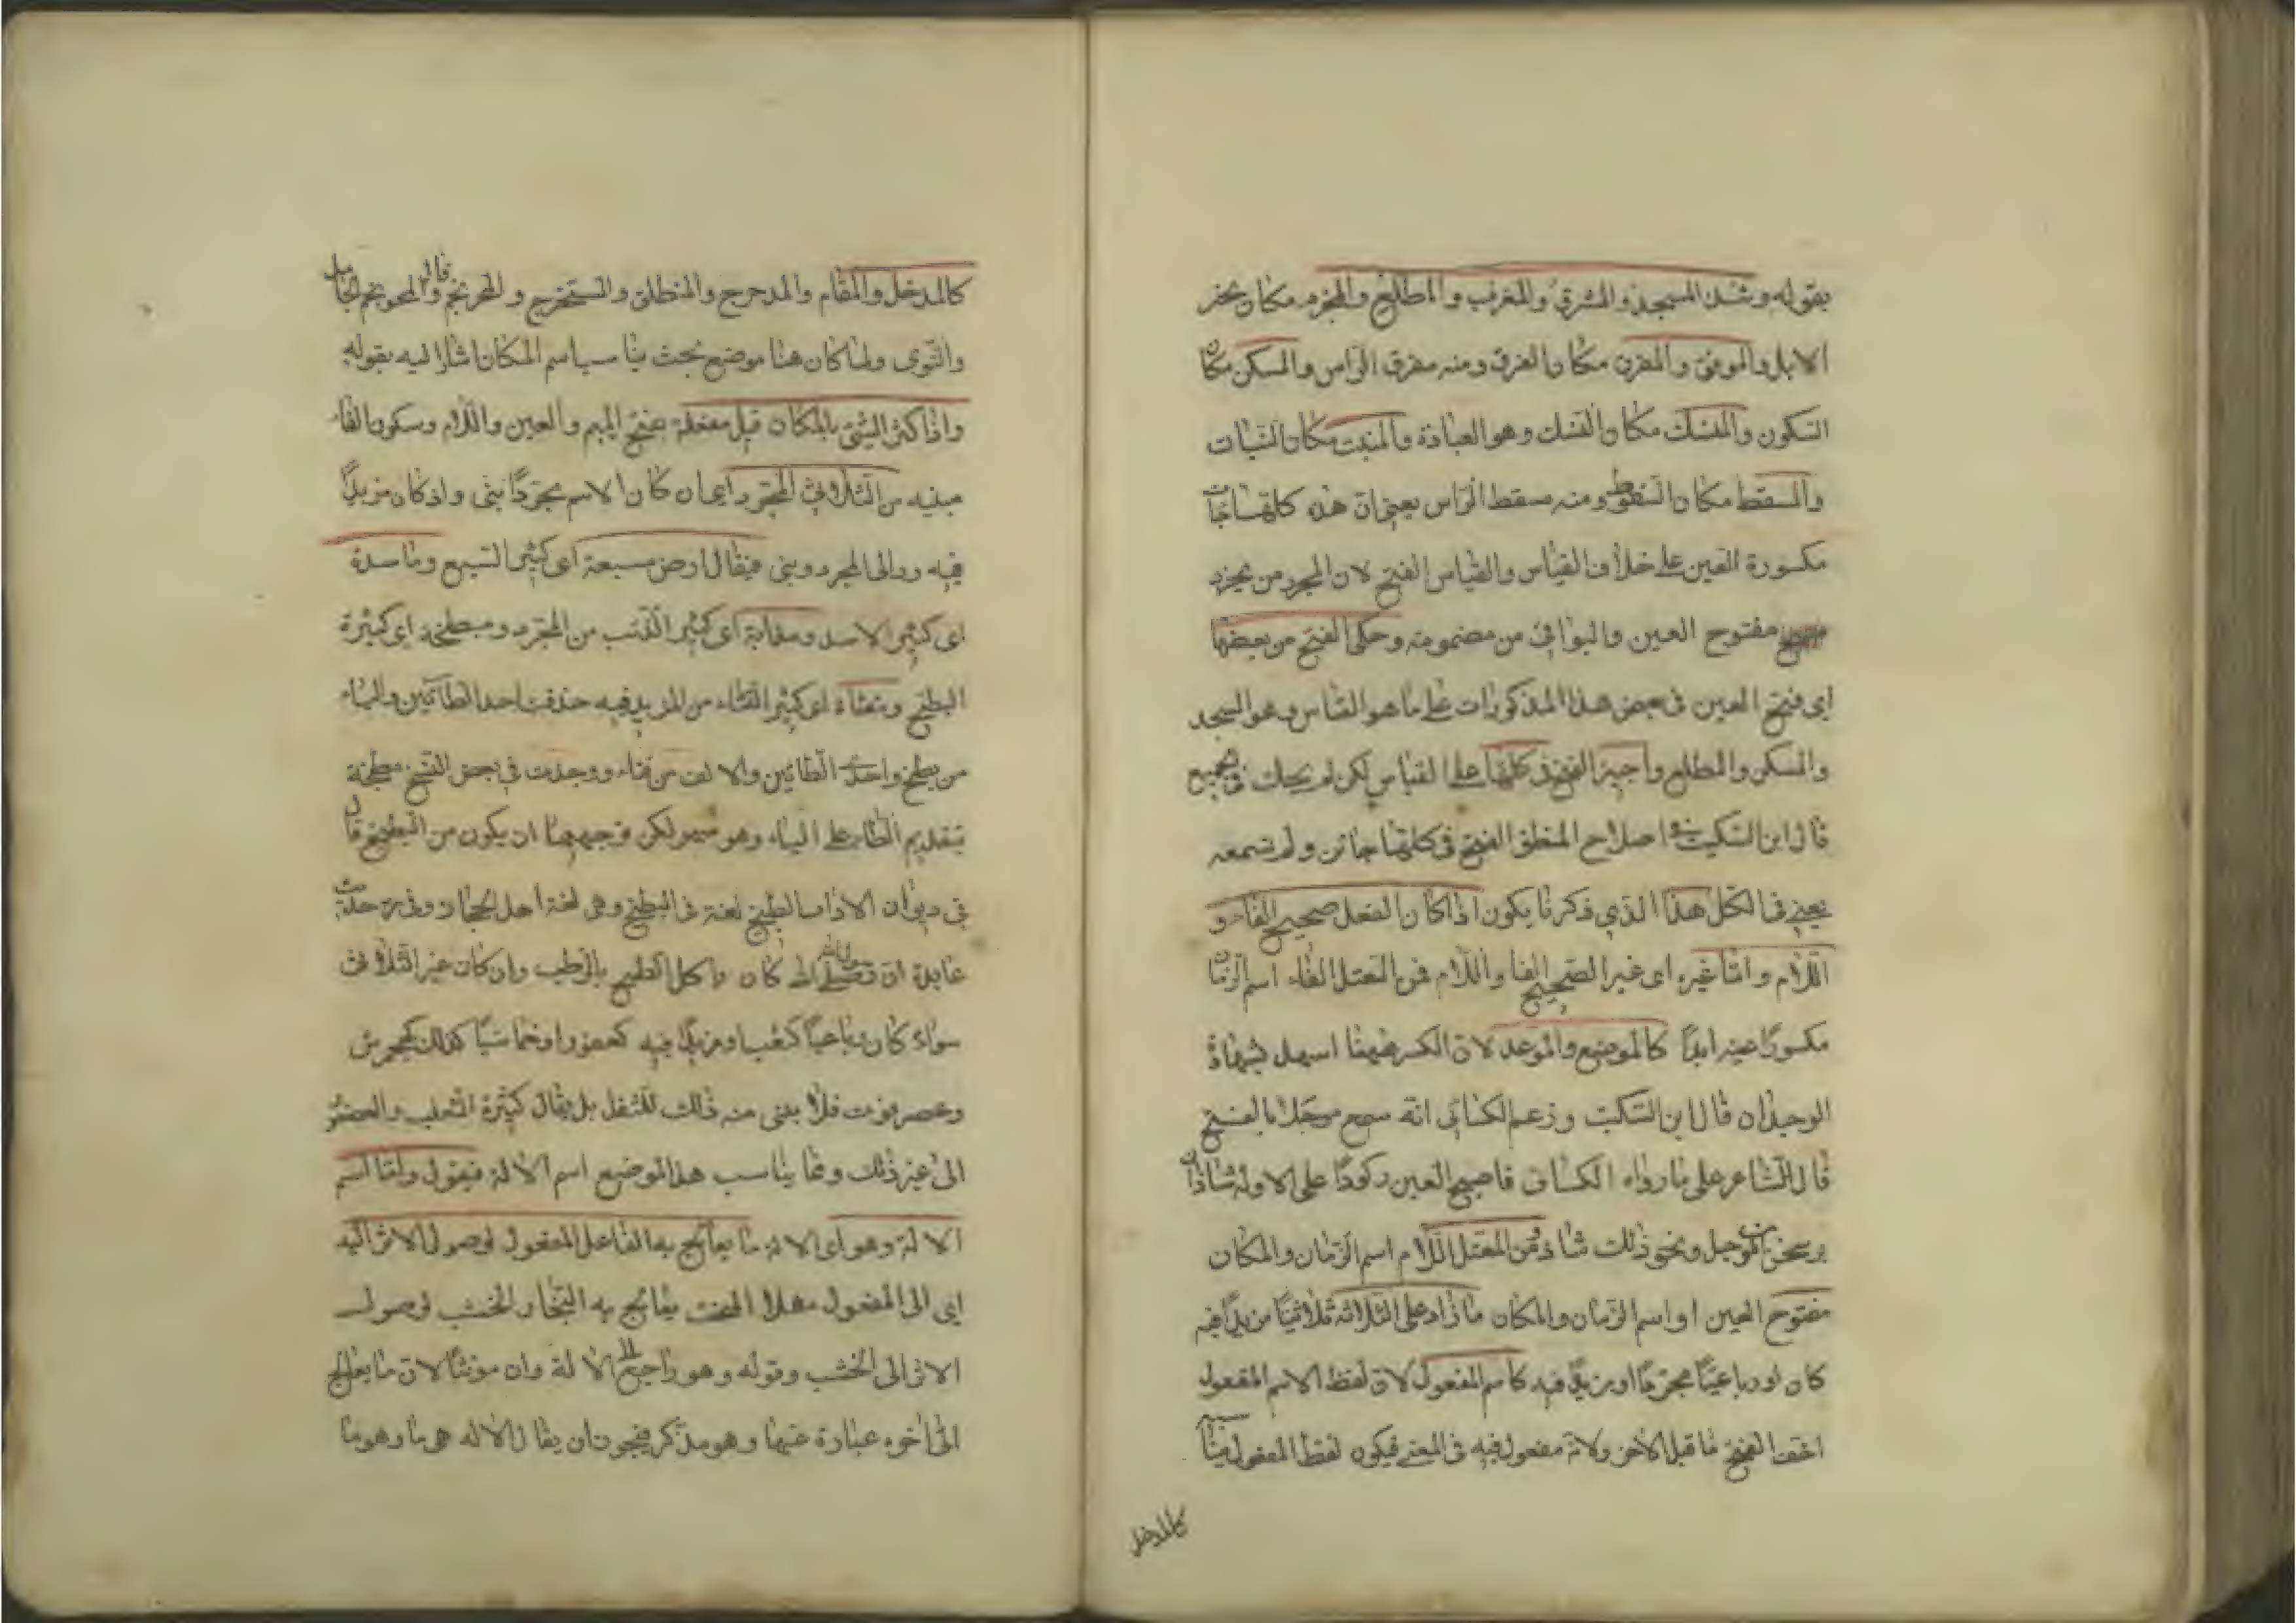 بقوله وشذ المسجد والمشرق والمغرب والمطلع والمجزر مكان نحر
الابل والمرفق والمفرق مكان الفرق ومنه مفرق الراس والمسكن مكان
السكون والمنسك مكان النسك وهو العبادة والمنبت مكان النبات
والمسقط مكان السقوط ومنه مسقط الراس يعني ان هذه كلها جاءت
مكسورة العين على خلاف القياس والقياس الفتح لان المجزر من يجزر
مفتوح العين والبواقي من مضمومه وحكي الفتح من بعضها
اي فتح العين في بعض هذا المذكورات على ما هو القياس وهو المسجد
والمسكن والمطلع واجيز الفتح في كلها على القياس لكن لم يحك في الجميع
قال ابن السكيت في اصلاح المنطق الفتح في كلها جائز ولم نسمعه
يعني في الكل هذا الذي ذكرنا يكون اذا كان الفعل صحيح الفاء و
اللام واما غيره اي غير الصحيح الفا واللام فمن المعتل الفاء اسم الزمان
مكسورًا عينه ابدًا كالموضع والموعد لان الكسر ههنا اسهل بشهادة
الوجدان قال ابن السكيت وزعم الكسائي انه سمع موجلا بالفتح
قال الشاعر على ما رواه الكسائي فاصبح العين ركودًا على الاوشاذان
يرسخن الموجل ونحو ذلك شاذ ومن المعتل اللام اسم الزمان والمكان
مفتوح العين او اسم الزمان والمكان ما زاد على الثلاثة ثلاثيًا مزيدًا فيه
كان او رباعيًا مجردًا او مزيدًا فيه كاسم المفعول لان لفظ الاسم المفعول
اخف الفتح ما قبل الاخر ولانه مفعول فيه في المعنى فيكون لفظ المفعول
كالمدخل
كالمدخل والمقام والمدحرج والمنطلق والمستخرج والمحرنجم قال والمحرنجم الجامل
والنوى ولما كان هنا موضع بحث يناسب اسم المكان اشار اليه بقوله
واذا كثر الشئ بالمكان قيل مفعلة بفتح الميم والعين واللام وسكون الفاء
مبنيه من الثلاثي المجرد اي ان كان الاسم مجردًا بنى وان كان مزيدًا
فيه رد الى المجرد وبنى فيقال ارض مسبعة اى كثير السبع وماسدة
اى كثير الاسد ومذابة اى كثير الذئب من المجرد ومبطخة اى كثيرة
البطيخ ومقثاة اى كثير القثاء من المزيد فيه حذفت احد الطائين والياء
من بطيخ واحدى الطائين والالف من قثاء ووجدت في بعض النسخ مطبخة
بتقديم الطاء على الباء وهو سهو لكن توجيهها ان يكون من الطبيخ قال
في ديوان الادب الطبيخ لغة في البطيخ وهى لغة اهل الحجاز وفي حديث
عايشة ان رسول الله صلى الله كان ياكل الطبيخ بالرطب وان كان غير الثلاثي
سواء كان رباعيًا كثعلب او مزيدًا فيه كعصفور او خماسيًا كذلك كجحمرش
وعضرفوت فلا يبنى منه ذلك للثقل بل يقال كثيرة الثعلب والعصفور
الى غير ذلك ومما يناسب هذا الموضع اسم الالة فيقول واما اسم
الالة وهو اى الالة ما يعالج به الفاعل المفعول لوصول الاثر اليه
اي الى المفعول مثلا المنحت يعالج به النجار الخشب لوصول
الاثر الى الخشب وقوله وهو راجع الى الالة وان مونثًا لان ما يعالج
الى اخره عبارة عنها وهو مذكر فيجوز ان يقال الاله هى ما وهو ما